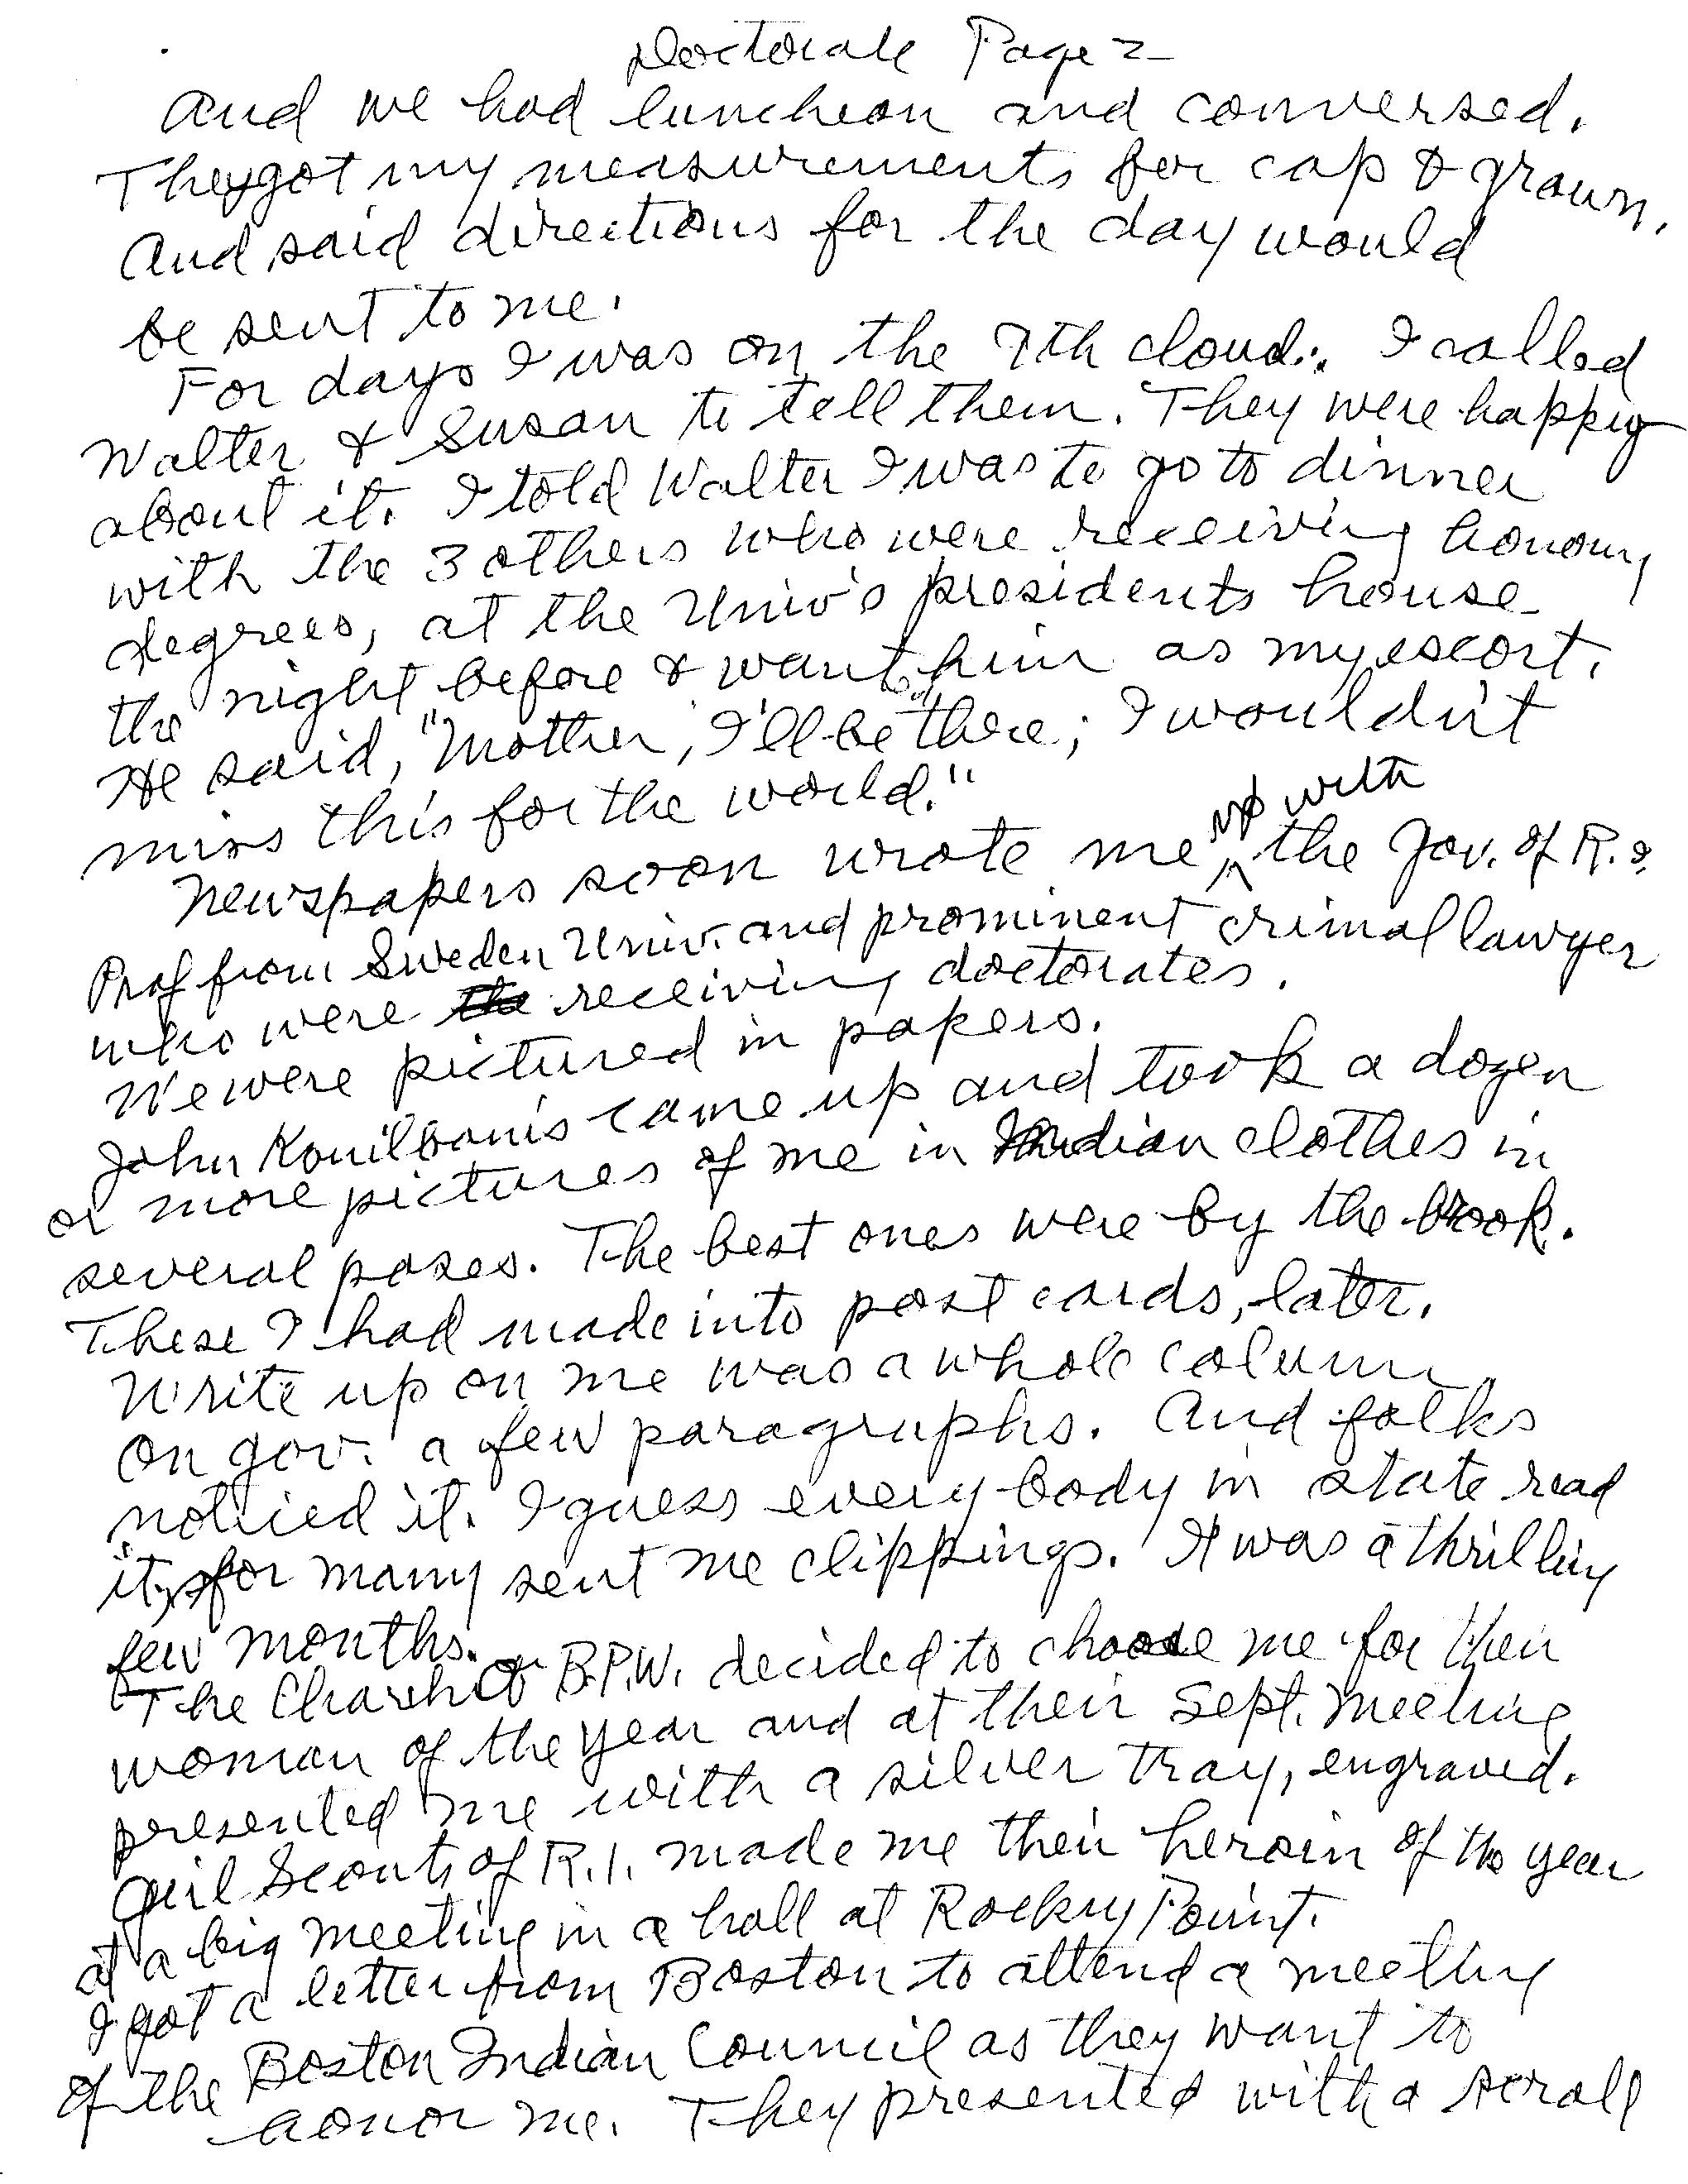 Doctorate Page 2
And we had luncheon and conversed.
They got my measurements for cap & grown.
And said directions for the day would
be sent to me.
For days I was on the 7th cloud. I called
Walter & Susan to tell them. They were happy
about it. I told Walter I was to go to dinner
with the 3 others who were receiving honorary
degrees, at the Univ's presidents house
the night before & want him as my escort.
He said, "Mother, I'll be there; I wouldn't
miss this for the world."
Newspapers soon wrote me up with the Gov. of R.I.
Prof from Sweden Univ. and prominent crimal lawyer
who were receiving doctorates.
We were pictured in papers.
John Konilbanis came up and took a dozen
or more pictures of me in Indian clothes in
several poses. The best ones were by the brook.
These I had made into post cards, later.
Write up on me was a whole column.
On gov. a few paragraphs. And folks
noticed it. I guess every body in state read
it, for many sent me clippings. It was a thrilling
few months.
The B.P.W. decided to choose me for their
woman of the year and at their Sept. meeting
presented me with a silver tray, engraved.
Girl Scouts of R.I. made me their heroin of the year
at a big meeting in a hall at Rocky Point.
I got a letter from Boston to attend a meeting
of the Boston Indian Council as they want to
honor me. They presented with a scroll